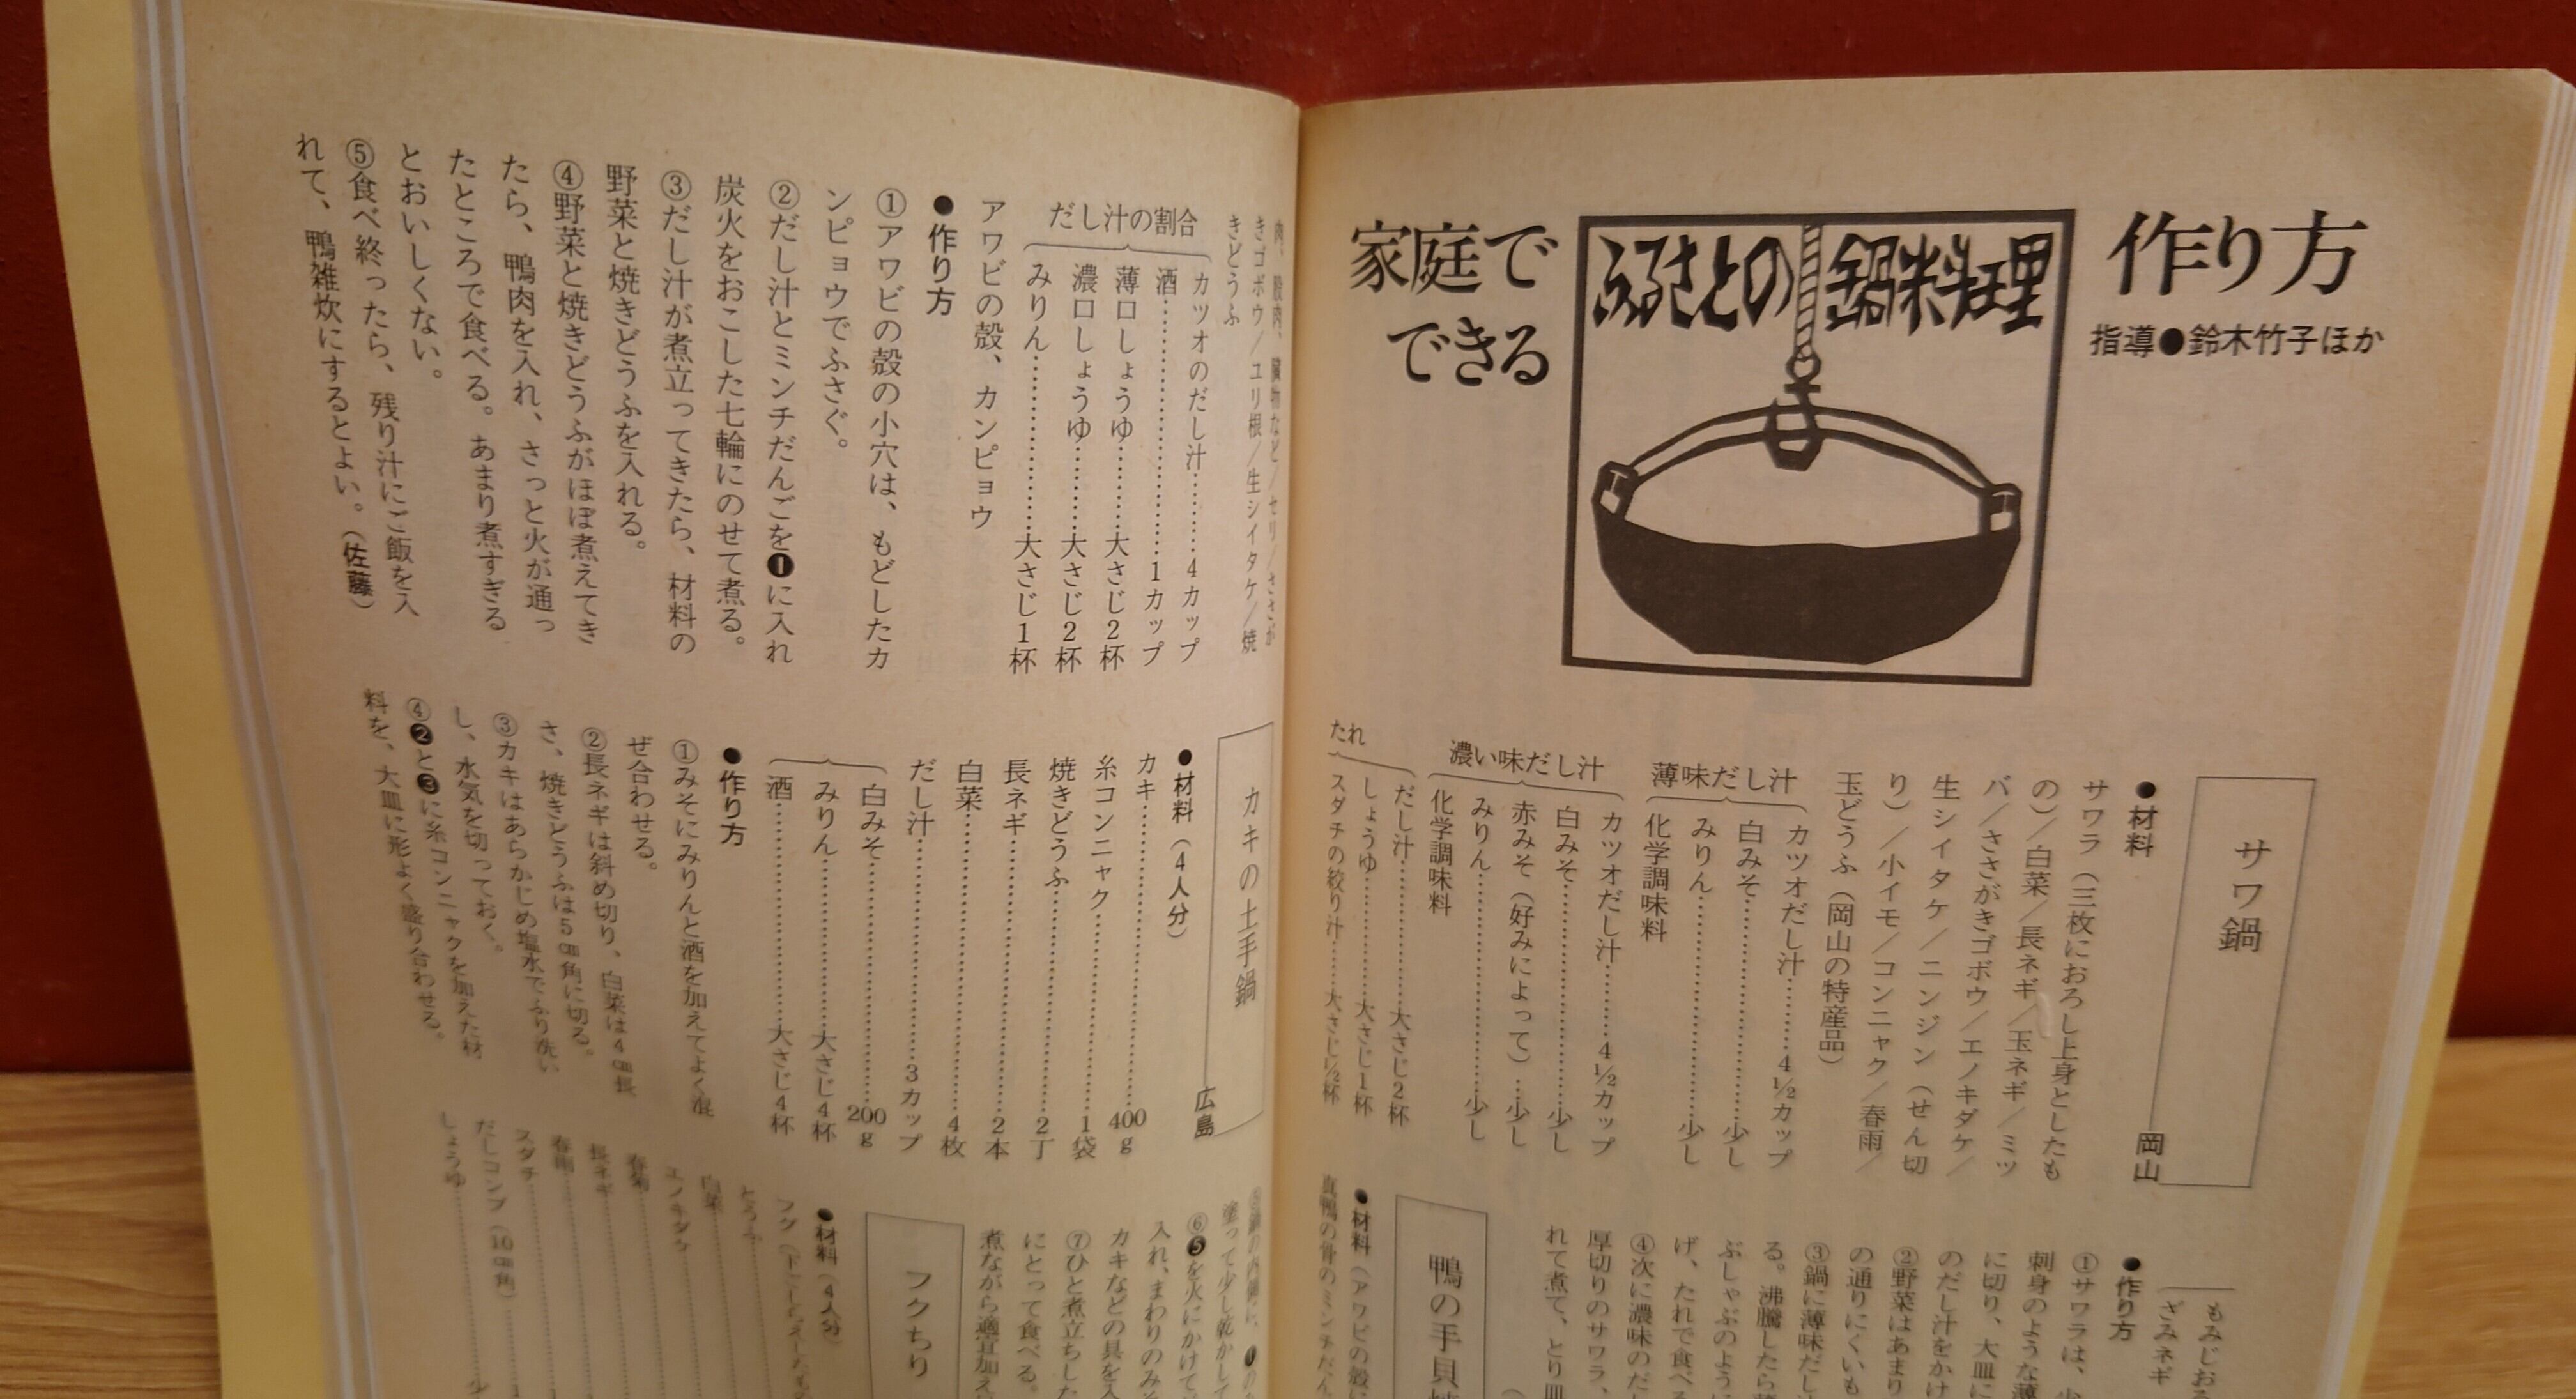 作り方
指導●鈴木竹子ほか
ふるさとの鍋料理
家庭で
できる
サワ鍋
岡山
●材料
サワラ（三枚におろし上身としたも
の）／白菜／長ネギ／玉ネギ／ミツ
バ／ささがきゴボウ／エノキダケ／
生シイタケ／ニンジン（せん切
り）／小イモ／コンニャク／春雨／
玉どうふ（岡山の特産品）
薄味だし汁
カツオだし汁……4½カップ
白みそ……少し
みりん……少し
化学調味料
濃い味だし汁
カツオだし汁……4½カップ
白みそ……少し
赤みそ（好みによって）…少し
みりん……少し
化学調味料
たれ
だし汁……大さじ2杯
しょうゆ……大さじ1杯
スダチの絞り汁……大さじ½杯
もみじおろ
ざみネギ
●作り方
①サワラは、少
刺身のような薄
に切り、大皿に
のだし汁をかけ
②野菜はあまり
の通りにくいも
③鍋に薄味だし
る。沸騰したら
ぶしゃぶのように
げ、たれで食べる
④次に濃味のだし
厚切りのサワラ、
れて煮て、とり皿
鴨の手貝
●材料（アワビの殻に
真鴨の骨のミンチだん
肉、殻肉、臓物など／セリ／ささが
きゴボウ／ユリ根／生シイタケ／焼
きどうふ
だし汁の割合
カツオのだし汁……4カップ
酒……1カップ
薄口しょうゆ……大さじ2杯
濃口しょうゆ……大さじ2杯
みりん……大さじ1杯
アワビの殻、カンピョウ
●作り方
①アワビの殻の小穴は、もどしたカ
ンピョウでふさぐ。
②だし汁とミンチだんごを❶に入れ
炭火をおこした七輪にのせて煮る。
③だし汁が煮立ってきたら、材料の
野菜と焼きどうふを入れる。
④野菜と焼きどうふがほぼ煮えてき
たら、鴨肉を入れ、さっと火が通っ
たところで食べる。あまり煮すぎる
とおいしくない。
⑤食べ終ったら、残り汁にご飯を入
れて、鴨雑炊にするとよい。（佐藤）
カキの土手鍋
広島
●材料（4人分）
カキ……400g
糸コンニャク……1袋
焼きどうふ……2丁
長ネギ……2本
白菜……4枚
だし汁……3カップ
白みそ……200g
みりん……大さじ4杯
酒……大さじ4杯
●作り方
①みそにみりんと酒を加えてよく混
ぜ合わせる。
②長ネギは斜め切り、白菜は4cm長
さ、焼きどうふは5cm角に切る。
③カキはあらかじめ塩水でふり洗い
し、水気を切っておく。
④❷と❸に糸コンニャクを加えた材
料を、大皿に形よく盛り合わせる。
塗って少し乾かして
⑥❺を火にかけて
入れ、まわりのみそ
カキなどの具を入
⑦ひと煮立ちした
にとって食べる。
煮ながら適宜加え
フクちり
●材料（4人分）
とうふ
白菜
エノキダケ
春菊
長ネギ
春雨
スダチ
だしコンブ（10cm角）
しょうゆ